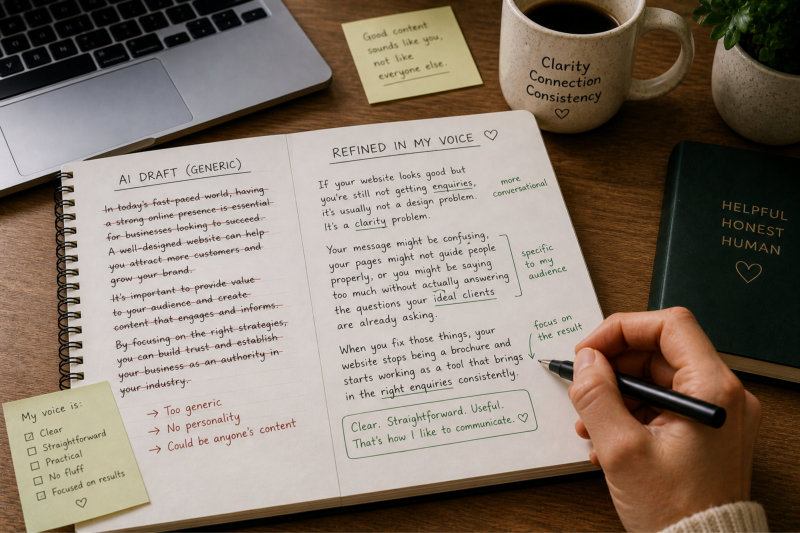 Good content
sounds like you,
not like
everyone else.
Clarity
Connection
Consistency
AI DRAFT (GENERIC)
In today's fast-paced world, having
a strong online presence is essential
for businesses looking to succeed.
A well-designed website can help
you attract more customers and
grow your brand.
It's important to provide value
to your audience and create
content that engages and informs.
By focusing on the right strategies,
you can build trust and establish
your business as an authority in
your industry.
→ Too generic
→ No personality
→ Could be anyone's content
My voice is:
Clear
Straightforward
Practical
No fluff
Focused on results
REFINED IN MY VOICE
If your website looks good but
you're still not getting enquiries,
it's usually not a design problem.
It's a clarity problem.
more
conversational
Your message might be confusing,
your pages might not guide people
properly, or you might be saying
too much without actually answering
the questions your ideal clients
are already asking.
specific
to my
audience
When you fix those things, your
website stops being a brochure and
starts working as a tool that brings
in the right enquiries consistently.
focus on
the result
Clear. Straightforward. Useful.
That's how I like to communicate.
HELPFUL
HONEST
HUMAN